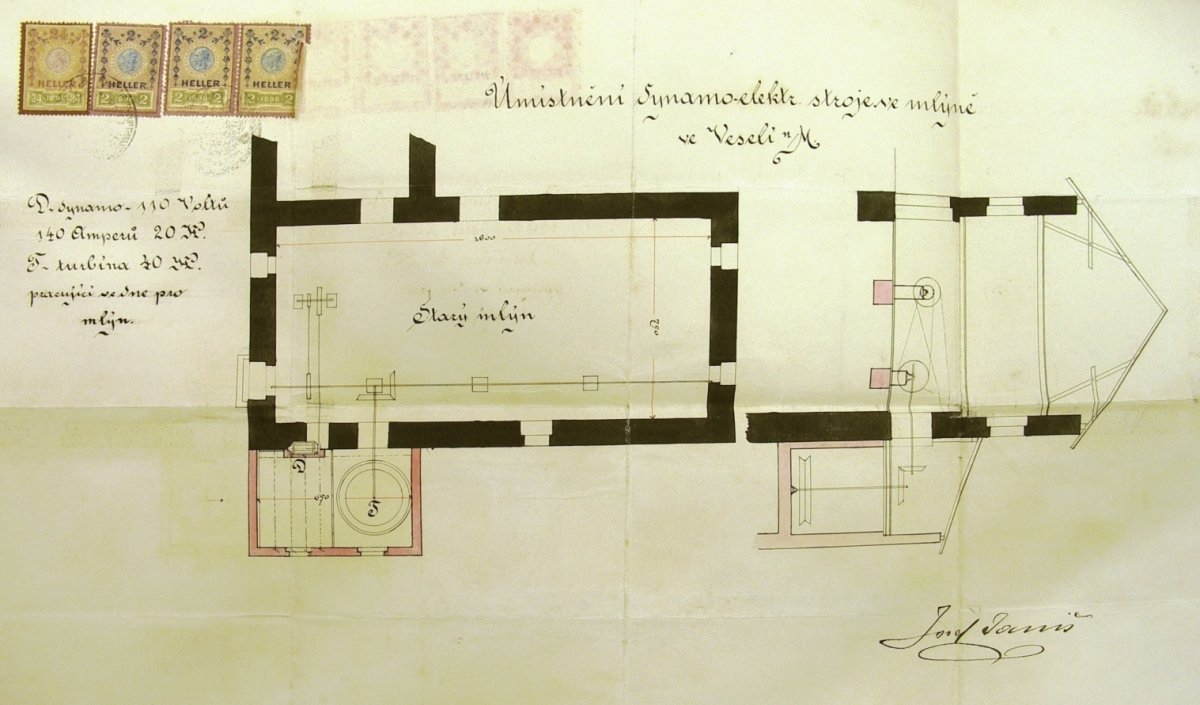 24
HELLER
24 1898 24
2
HELLER
2 1898 2
2
HELLER
2 1898 2
2
HELLER
2 1898 2
Umístnění dynamo-elektr. stroje ve mlýně
ve Veselí n/M
D-dynamo-110 Voltů
140 Amperů 20 H.
T- turbína 40 H.
pracující ve dne pro
mlýn.
1600
Starý mlýn
760
D
690
T
Josef